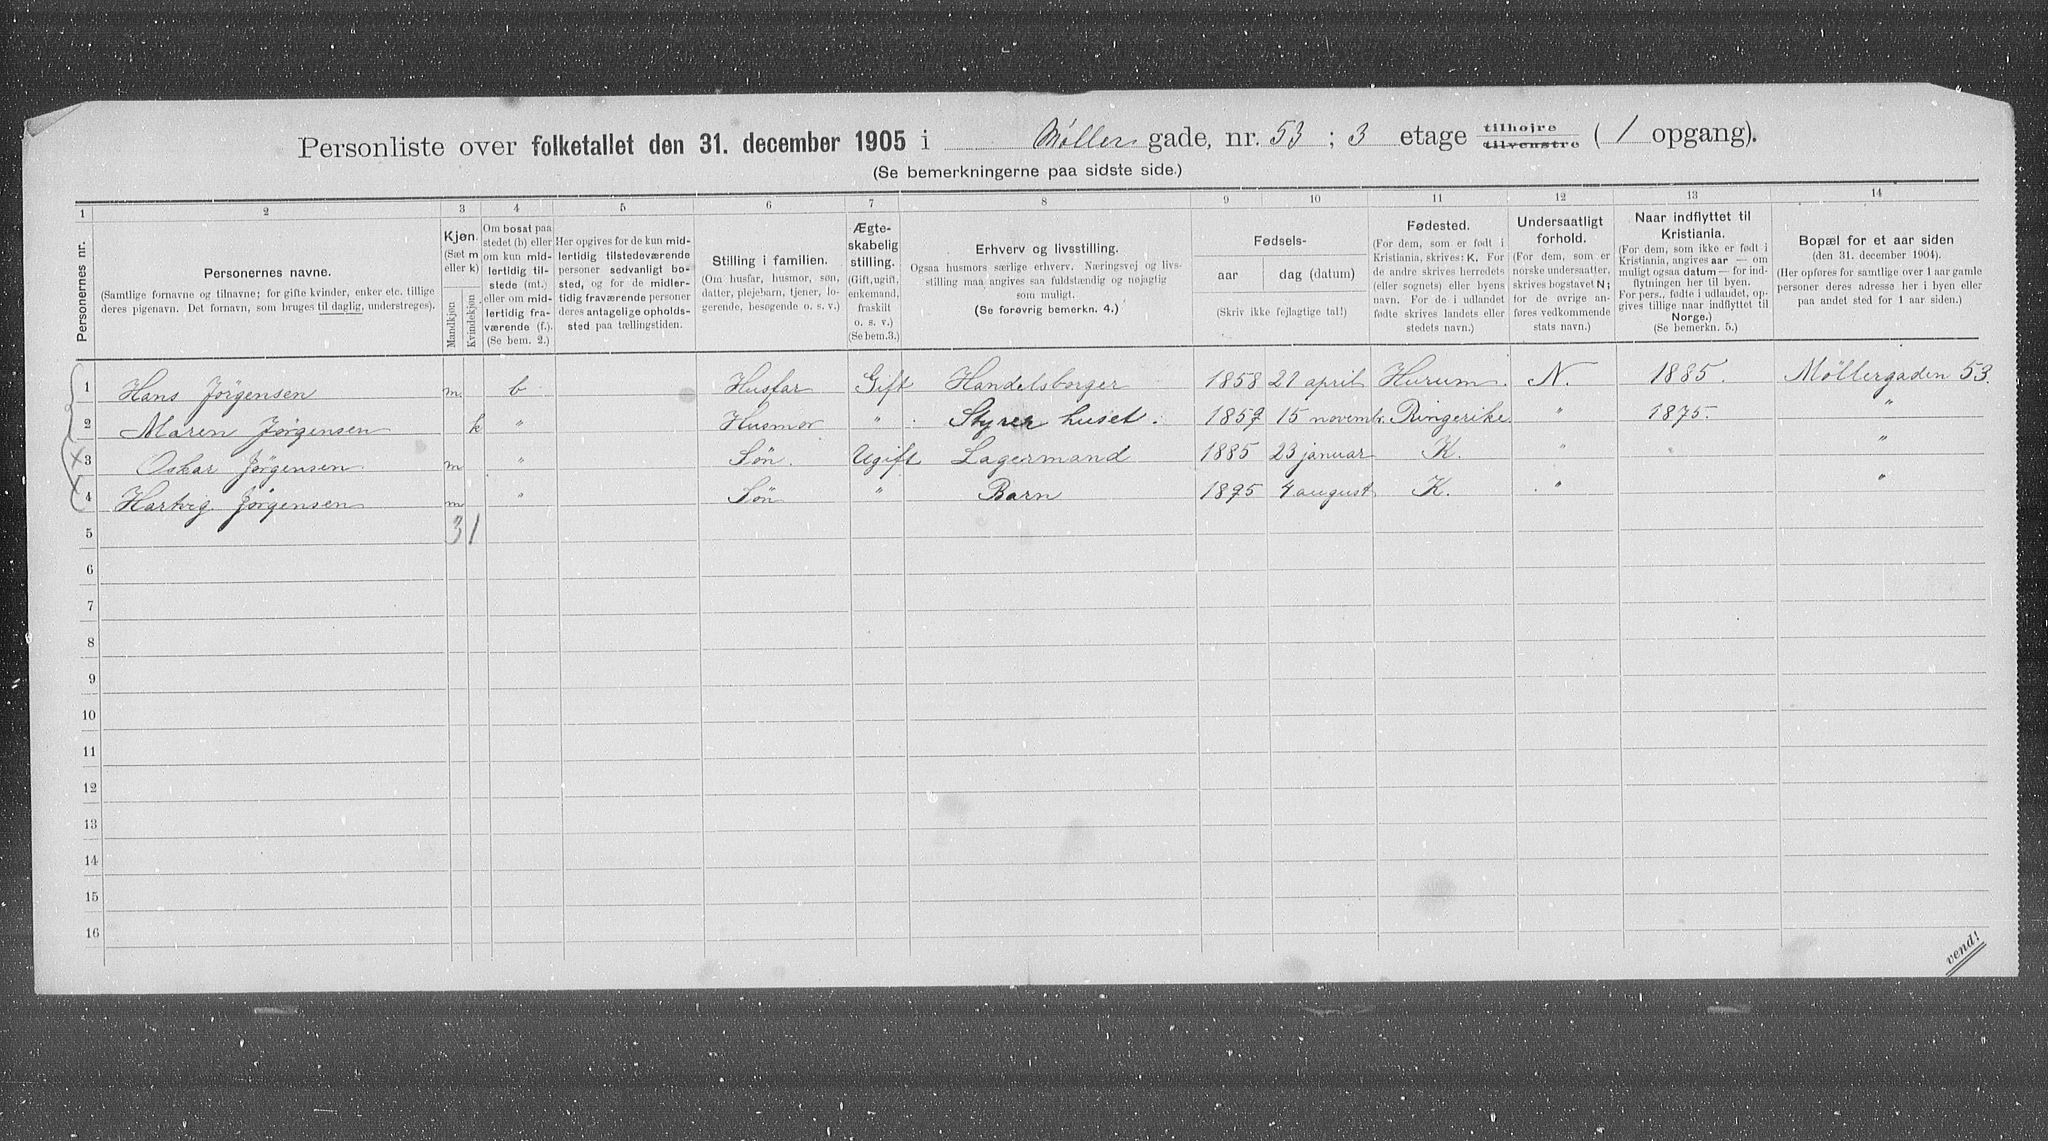 Personliste over folketallet den 31. december 1905 i Møller gade, nr. 53 ; 3 etage tilhøjre tilvenstre ( 1 opgang).
(Se bemerkningerne paa sidste side.)
1 2 3 4 5 6 7 8 9 10 11 12 13 14
Personernes nr.
Personernes navne.
(Samtlige fornavne og tilnavne; for gifte kvinder, enker etc. tillige
deres pigenavn. Det fornavn, som bruges til daglig, understreges).
Kjøn.
(Sæt m
eller k)
Mandkjøn
Kvindekjøn
Om bosat paa
stedet (b) eller
om kun mid-
lertidig til-
stede (mt.)
eller om mid-
lertidig fra-
værende (f.).
(Se bem. 2.)
Her opgives for de kun mid-
lertidig tilstedeværende
personer sedvanligt bo-
sted, og for de midler-
tidig fraværende personer
deres antagelige opholds-
sted paa tællingstiden.
Stilling i familien.
(Om husfar, husmor, søn,
datter, plejebarn, tjener, lo-
gerende, besøgende o. s. v.)
Ægte-
skabelig
stilling.
(Gift, ugift,
enkemand,
fraskilt
o. s. v.)
(Se bem.3.)
Erhverv og livsstilling.
Ogsaa husmors særlige erhverv. Næringsvej og livs-
stilling maa angives saa fuldstændig og nøjagtig
som muligt.
(Se forøvrig bemerkn. 4.)
Fødsels-
aar dag (datum)
(Skriv ikke fejlagtige tal!)
Fødested.
(For dem, som er født i
Kristiania, skrives: K. For
de andre skrives herredets
(eller sognets) eller byens
navn. For de i udlandet
fødte skrives landets eller
stedets navn.)
Undersaatligt
forhold.
(For dem, som er
norske undersaatter,
skrives bogstavet N;
for de øvrige an-
føres vedkommende
stats navn.)
Naar indflyttet til
Kristiania.
(For dem, som ikke er født i
Kristiania, angives aar — om
muligt ogsaa datum — for ind-
flytningen her til byen.
For pers., fødte i udlandet, op-
gives tillige naar indflyttet til
Norge.)
(Se bemerkn. 5.)
Bopæl for et aar siden
(den 31. december 1904).
(Her opføres for samtlige over 1 aar gamle
personer deres adresse her i byen eller
paa andet sted for 1 aar siden.)
1 Hans Jørgensen m. b Husfar Gift Handelsborger 1858 21 april Hurum. N. 1885. Møllergaden 53.
2 Maren Jørgensen k " Husmor " Styrer huset. 1857 15 novemb. Ringerike " 1875. "
3 Oskar Jørgensen. m " Søn. Ugift Lagermand 1885 23 januar K. " "
4 Hartvig Jørgensen m " Søn " Barn 1895 4 august K. " "
5 3 1
6
7
8
9
10
11
12
13
14
15
16
vend!